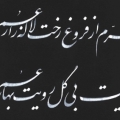 خرم از فروغ رخت لاله زار عمر
بی گل رویت بهار عمر